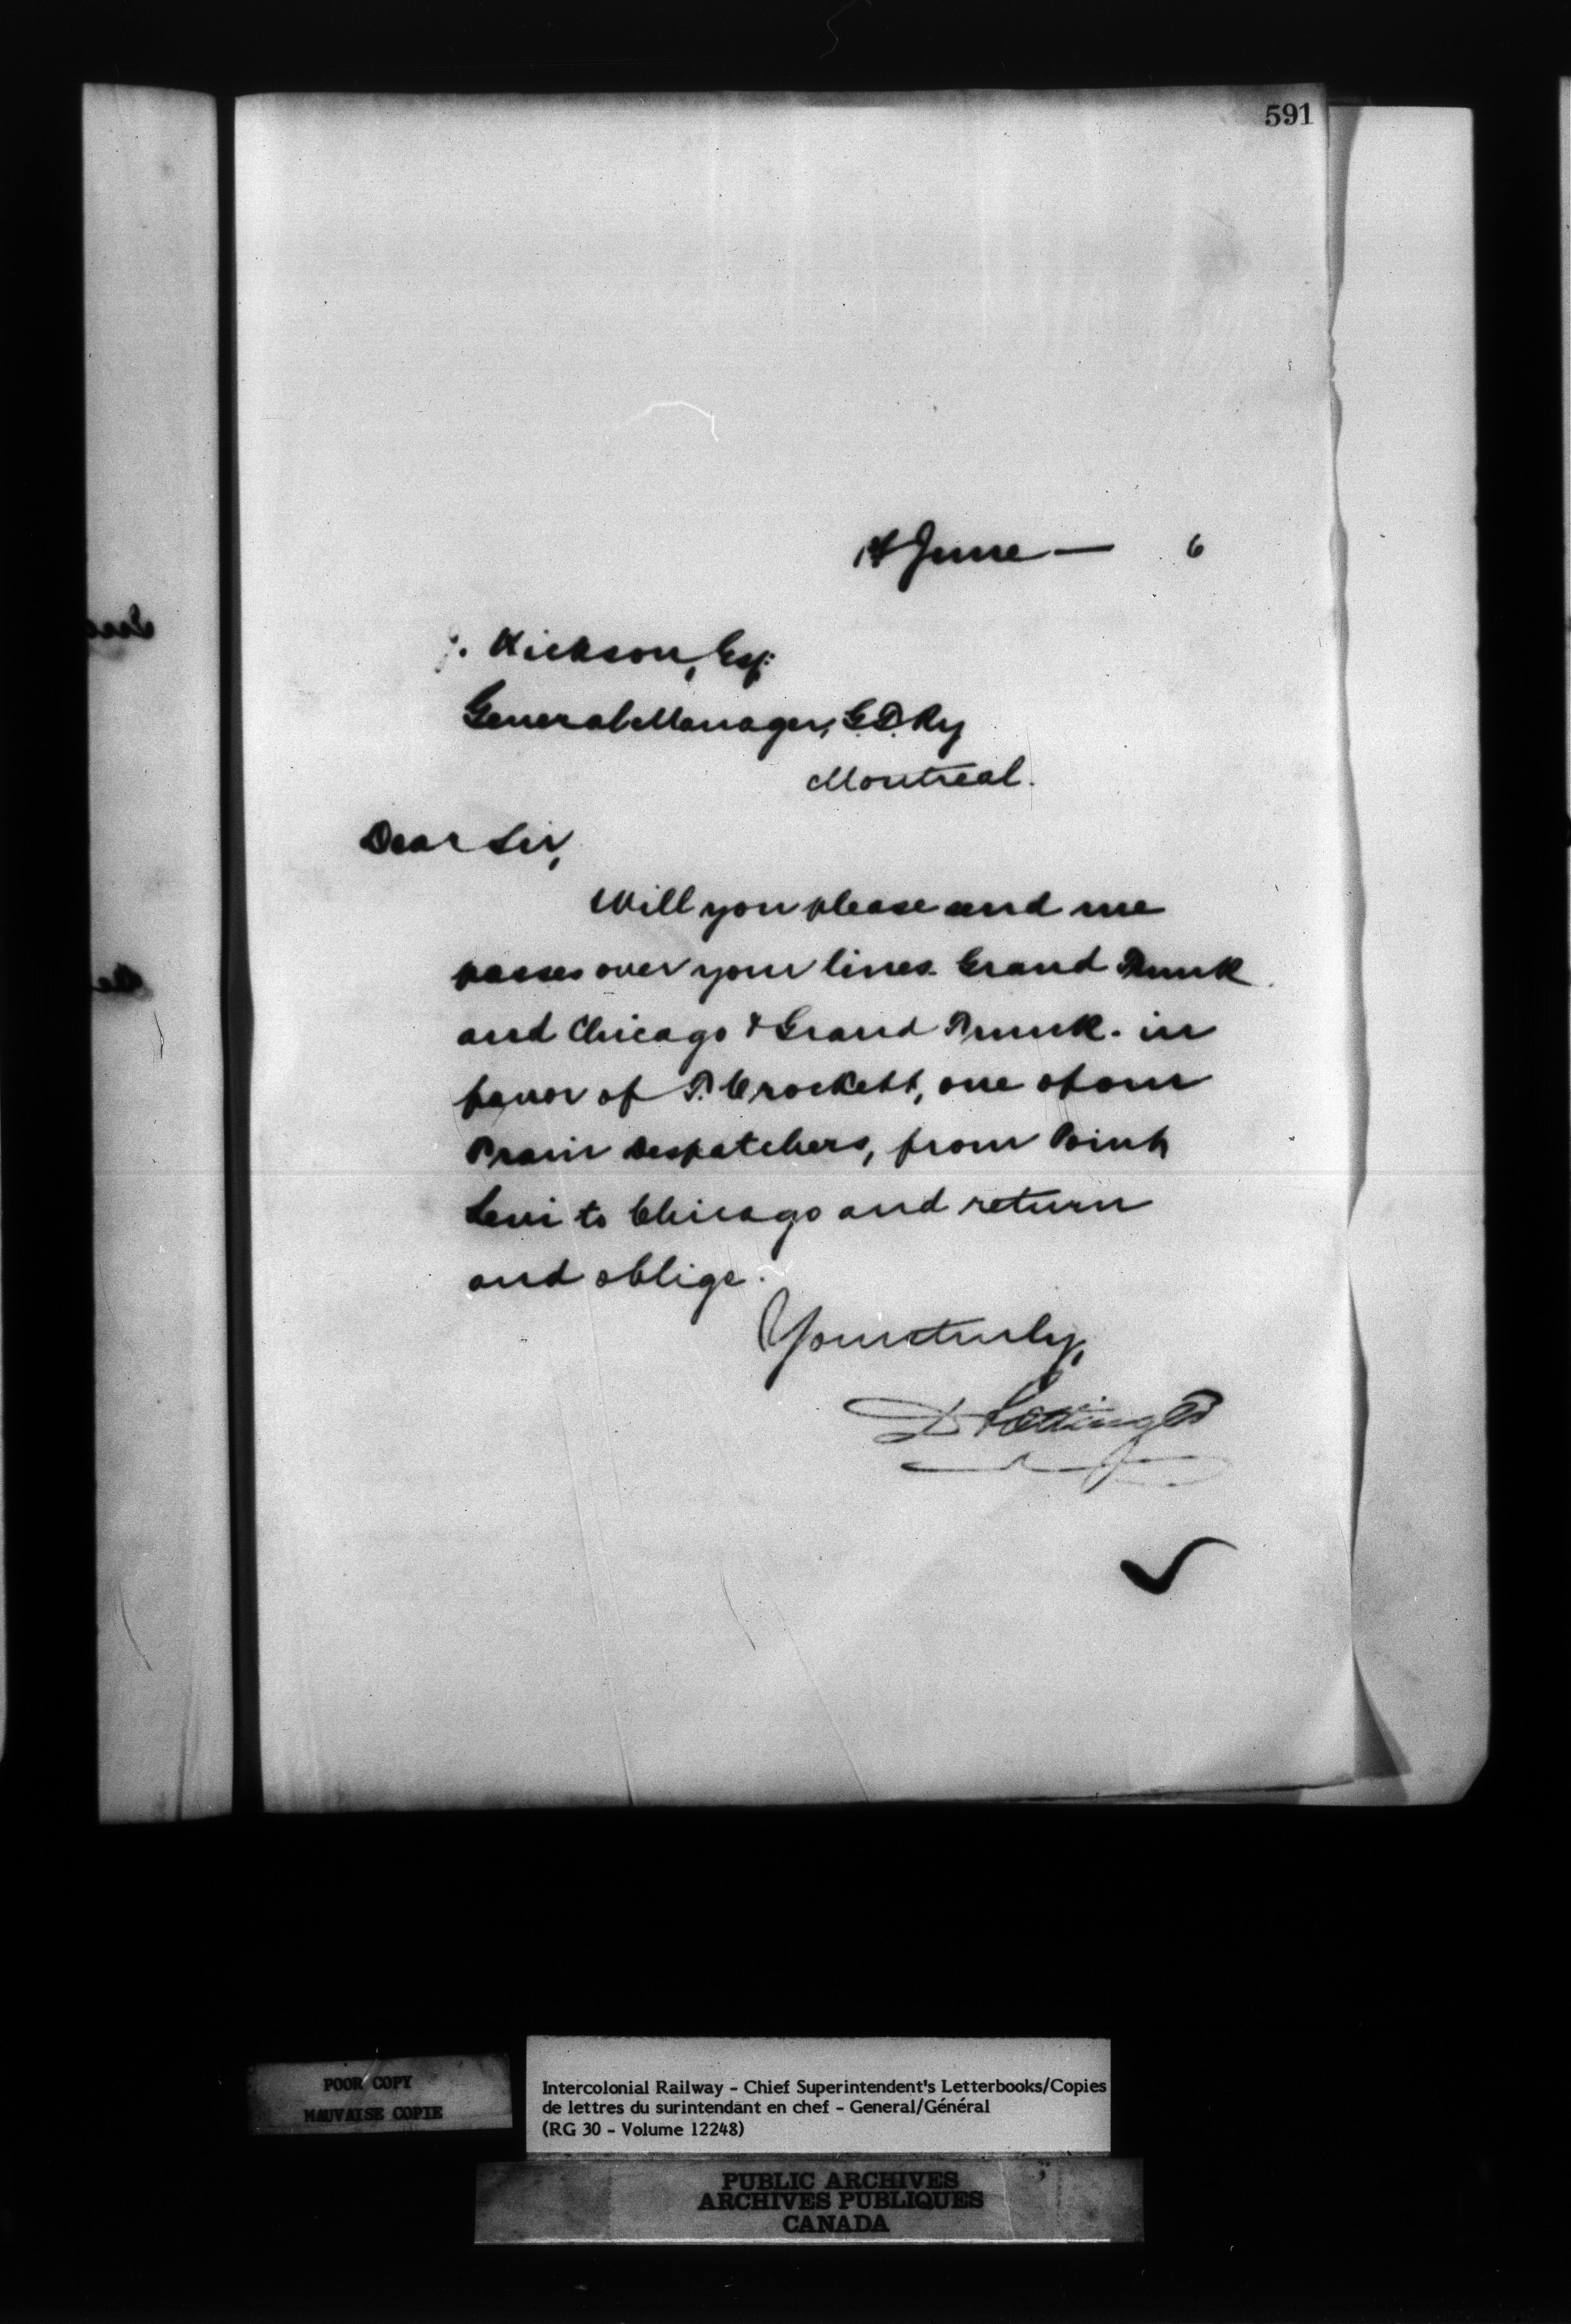 591
14 June — 6
J. Hickson, Esq:
General Manager, G.T. Ry
Montreal.
Dear Sir,
Will you please send me
passes over your lines. Grand Trunk
and Chicago & Grand Trunk. in
favor of T. Crockett, one of our
Train Despatchers, from Point
Levi to Chicago and return
and oblige.
Yours truly,
D Pottinger
POOR COPY
MAUVAISE COPIE
Intercolonial Railway - Chief Superintendent's Letterbooks/Copies
de lettres du surintendant en chef - General/Général
(RG 30 - Volume 12248)
PUBLIC ARCHIVES
ARCHIVES PUBLIQUES
CANADA